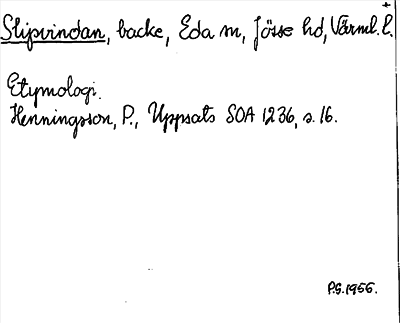 Slipvindan, backe, Eda sn, Jösse hd, Värml. l. +
Etymologi.
Henningsson, P., Uppsats SOA 1236, s. 16.
P.G. 1956.